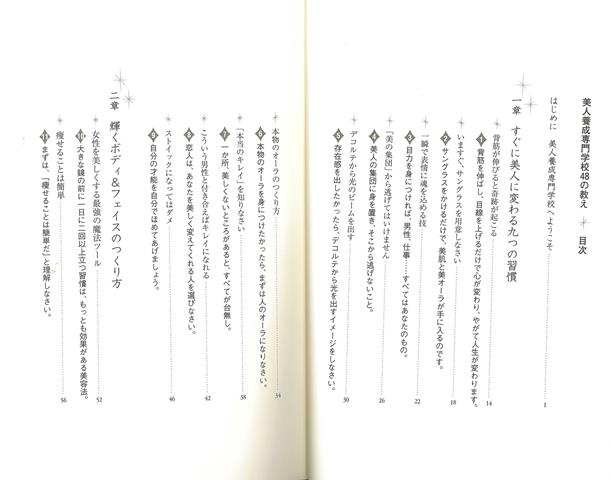 美人養成専門学校48の教え 目次
はじめに 美人養成専門学校へようこそ 1
一章 すぐに美人に変わる九つの習慣
背筋が伸びると奇跡が起こる 14
1 背筋を伸ばし、目線を上げるだけで心が変わり、やがて人生が変わります。
いますぐ、サングラスを用意しなさい 18
2 サングラスをかけるだけで、美肌と美オーラが手に入るのです。
一瞬で表情に魂を込める技 22
3 目力を身につければ、男性、仕事……すべてはあなたのもの。
「美の集団」から逃げてはいけません 26
4 美人の集団に身を置き、そこから逃げないこと。
デコルテから光のビームを出す 30
5 存在感を出したかったら、デコルテから光を出すイメージをしなさい。
本物のオーラのつくり方 34
6 本物のオーラを身につけたかったら、まずは人のオーラになりなさい。
「本当のキレイ」を知りなさい 38
7 一か所、美しくないところがあると、すべてが台無し。
こういう男性と付き合えばキレイになれる 42
8 恋人は、あなたを美しく変えてくれる人を選びなさい。
ストイックになってはダメ 46
9 自分の才能を自分でほめてあげましょう。
二章 輝くボディ&フェイスのつくり方
女性を美しくする最強の魔法ツール 52
10 大きな鏡の前に一日に二回以上立つ習慣は、もっとも効果がある美容法。
痩せることは簡単 56
11 まずは、「痩せることは簡単だ」と理解しなさい。